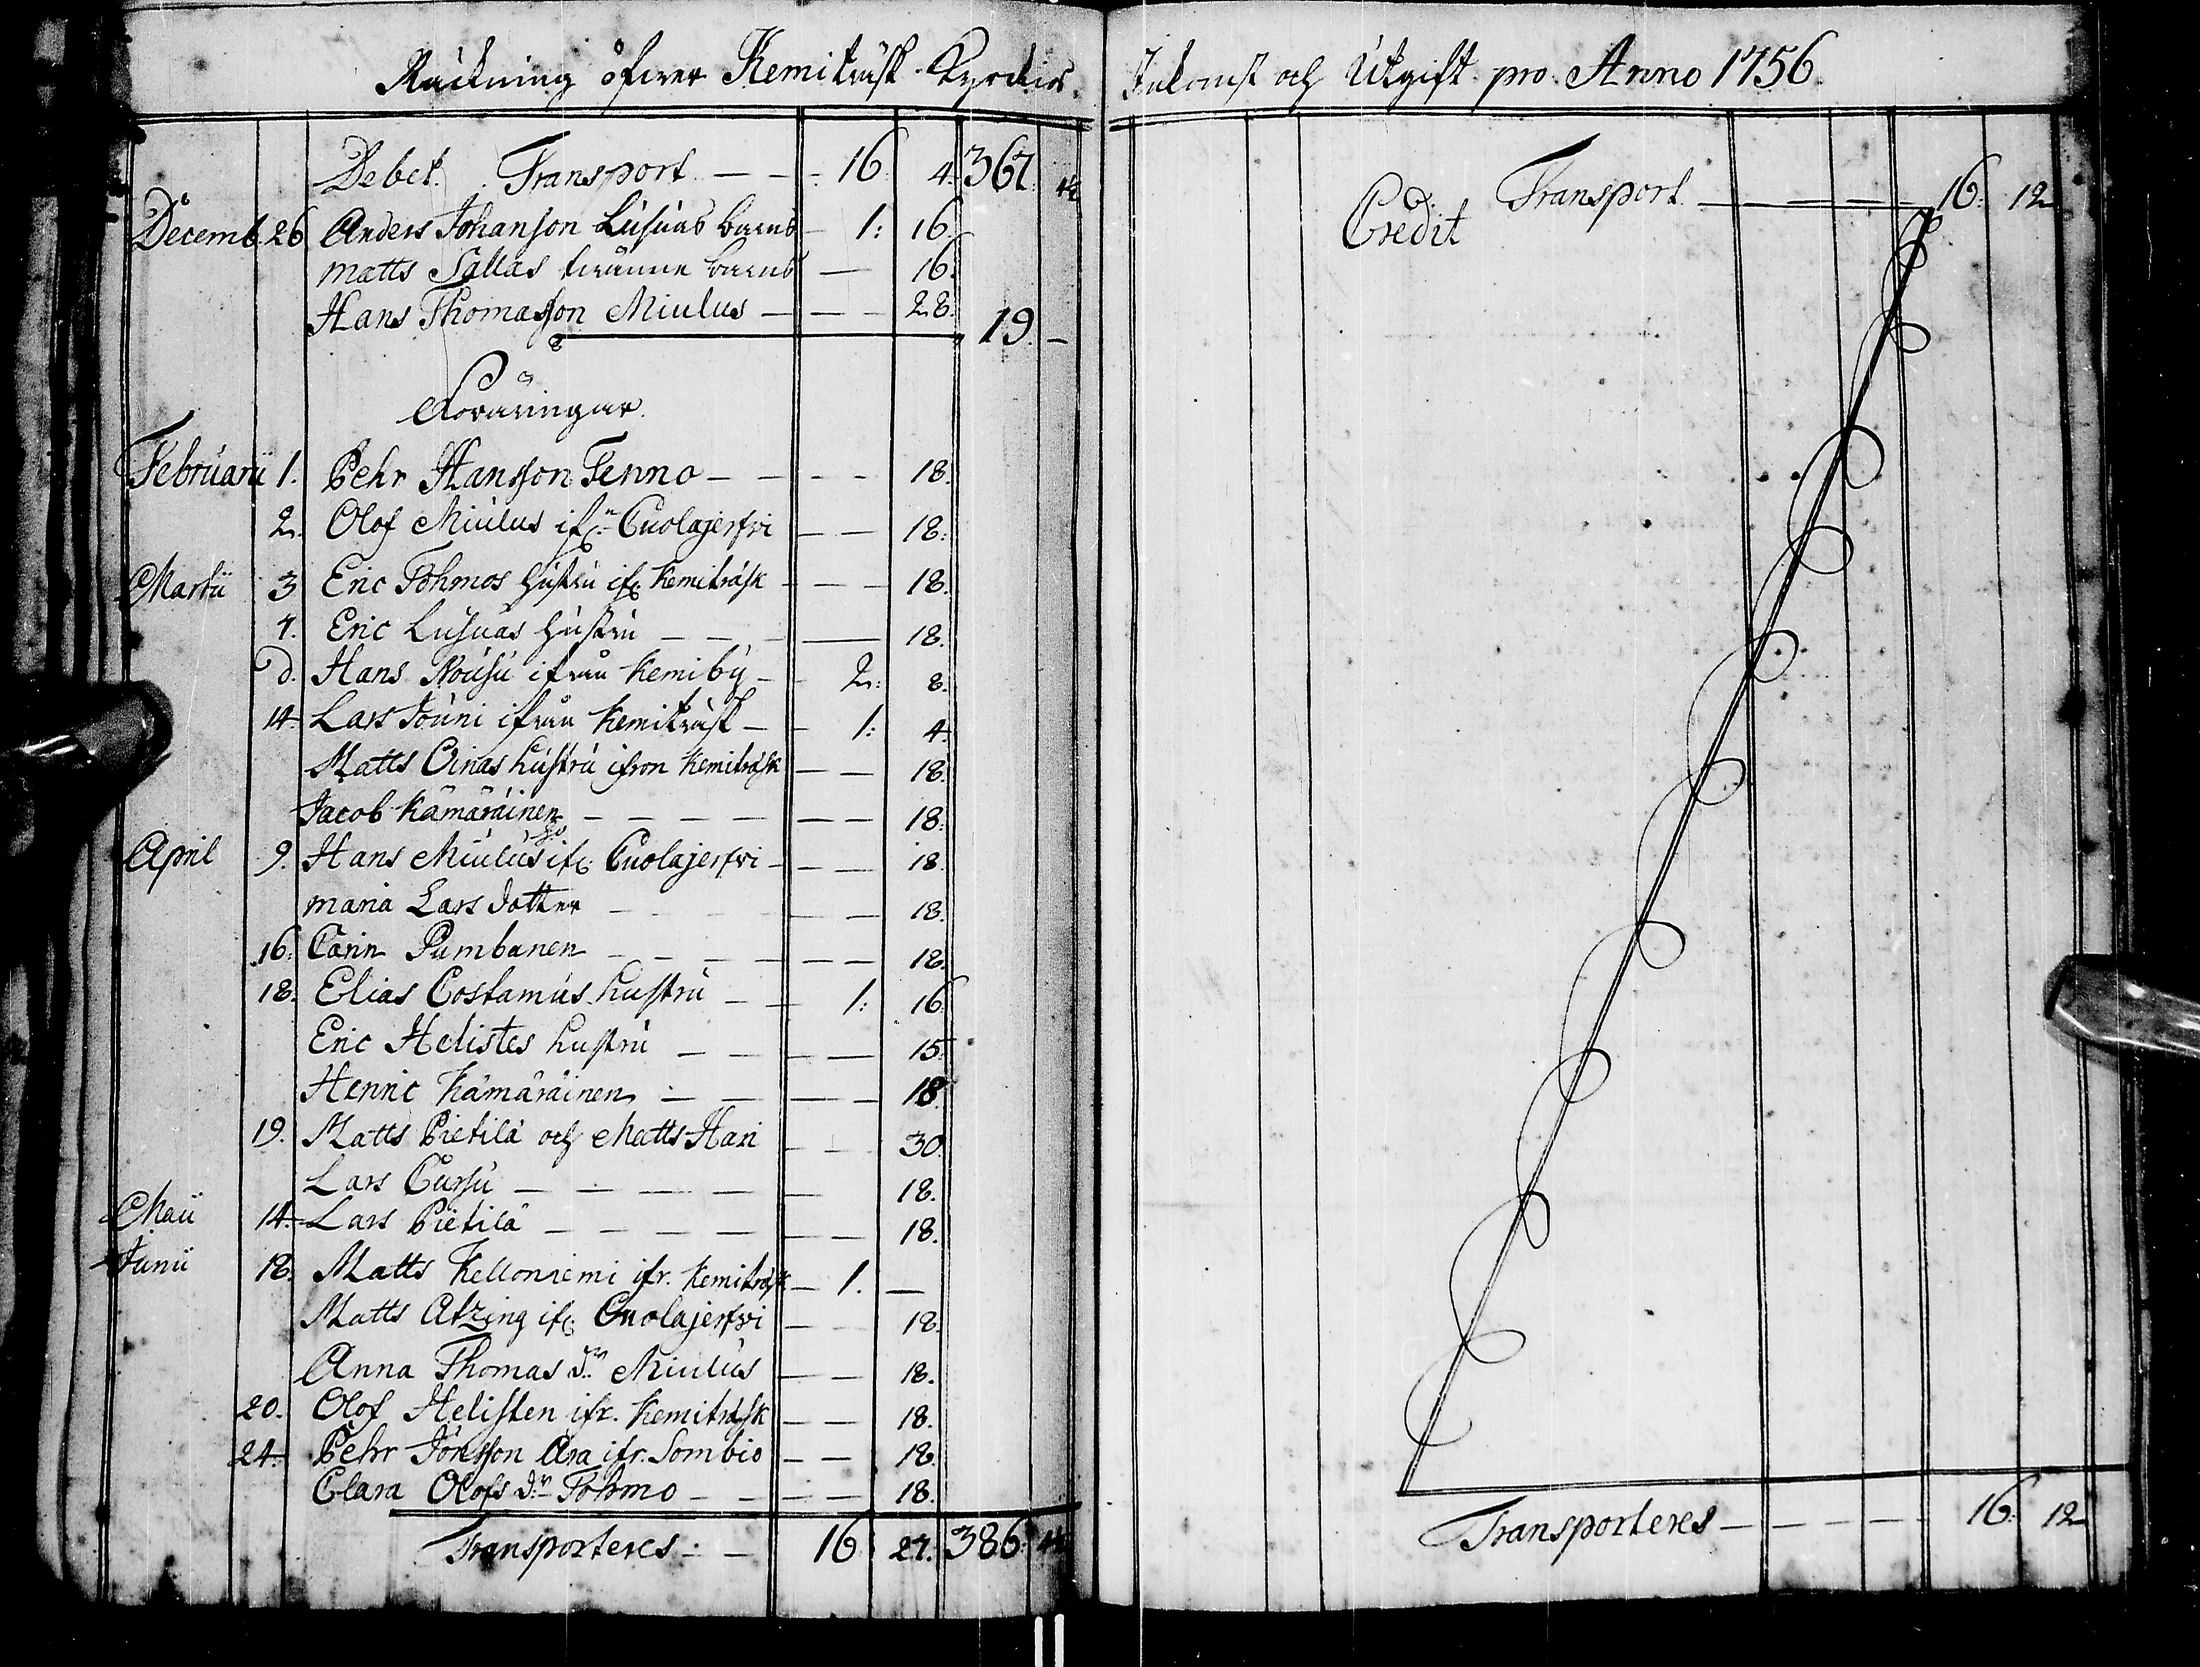 Räckning öfwer Kemiträsk Kyrckios Inkomst och Utgift pro Anno 1756.
Debet. Transport — — 16. 4. 367.
Decemb. 26 Anders Johansson Lusuas barns — 1: 16.
Matts Sallas barns — 16.
Hans Thomasson Miulus — — — 28. 19. —
Februarii 1. Pehr Hansson Tenno — — — — 18.
2. Olof Miulus ifn Cuolajerfwi — — 18.
Martii 3 Eric Pohmos hustru ifr Kemiträsk — — 18.
4. Eric Lusuas hustru — — — 18.
d. Hans Nousu ifrån Kemiby — 2: 8.
14. Lars Jouni ifrån Kemiträsk — 1: 4.
Matts Oinas hustru ifron Kemiträsk — — 18.
Jacob Kämäräinen — — — — — — 18.
April 9. Hans Miulus ho ifr Cuolajerfwi — — 18.
Maria Lars dotter — — — — 18.
16. Carin Pumbanen — — — — — 18.
18. Elias Costamus hustru — — 1: 16.
Eric Helistes hustru — — — — 15.
Henric Kämäräinen — — — — 18.
19. Matts Pietilä och Matts Hari — — 30.
Lars Cursu — — — — — 18.
Maii 14. Lars Pietilä — — — — — — 18.
Junii 18. Matts Kelloniemi ifr. Kemiträsk — 1. —
Matts Atzing ifr Cuolajerfwi — — 18.
Anna Thomas dr Miulus — — 18.
20. Olof Helisten ifr. Kemiträsk — — 18.
24. Pehr Jönsson Ara ifr. Sombio — — 18.
Clara Olofs dr Pohmo — — — — 18.
Transporteres — — 16. 27. 386.
Credit Transport — — — — — 16. 12
Transporteres — — — — — 16. 12